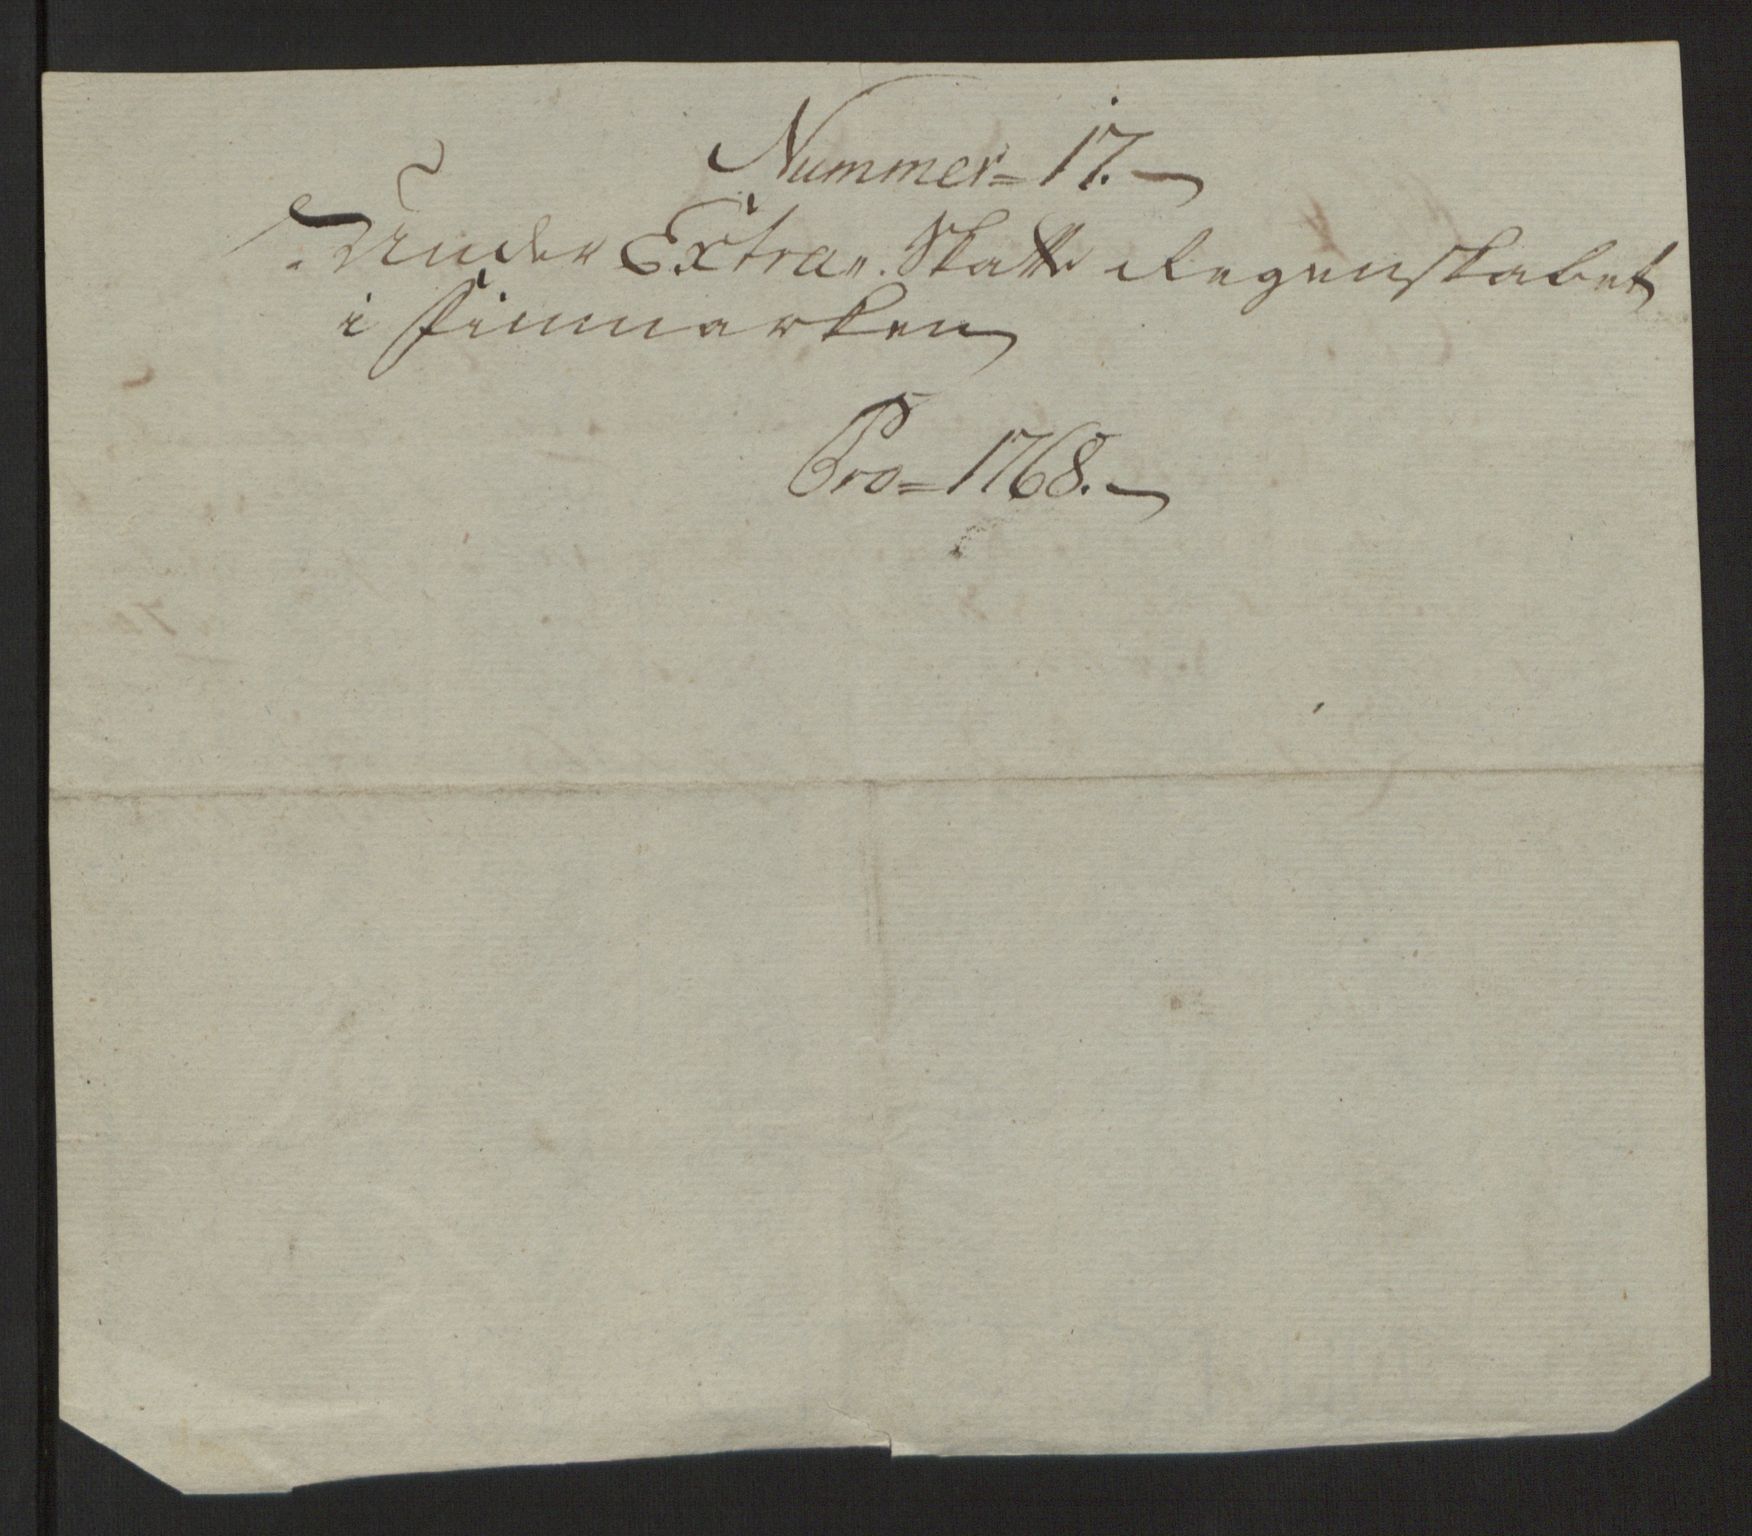 Nummer = 17. —
Under Extra „ Skatte Regenskabet
i Finmarken
Pro = 1768. —